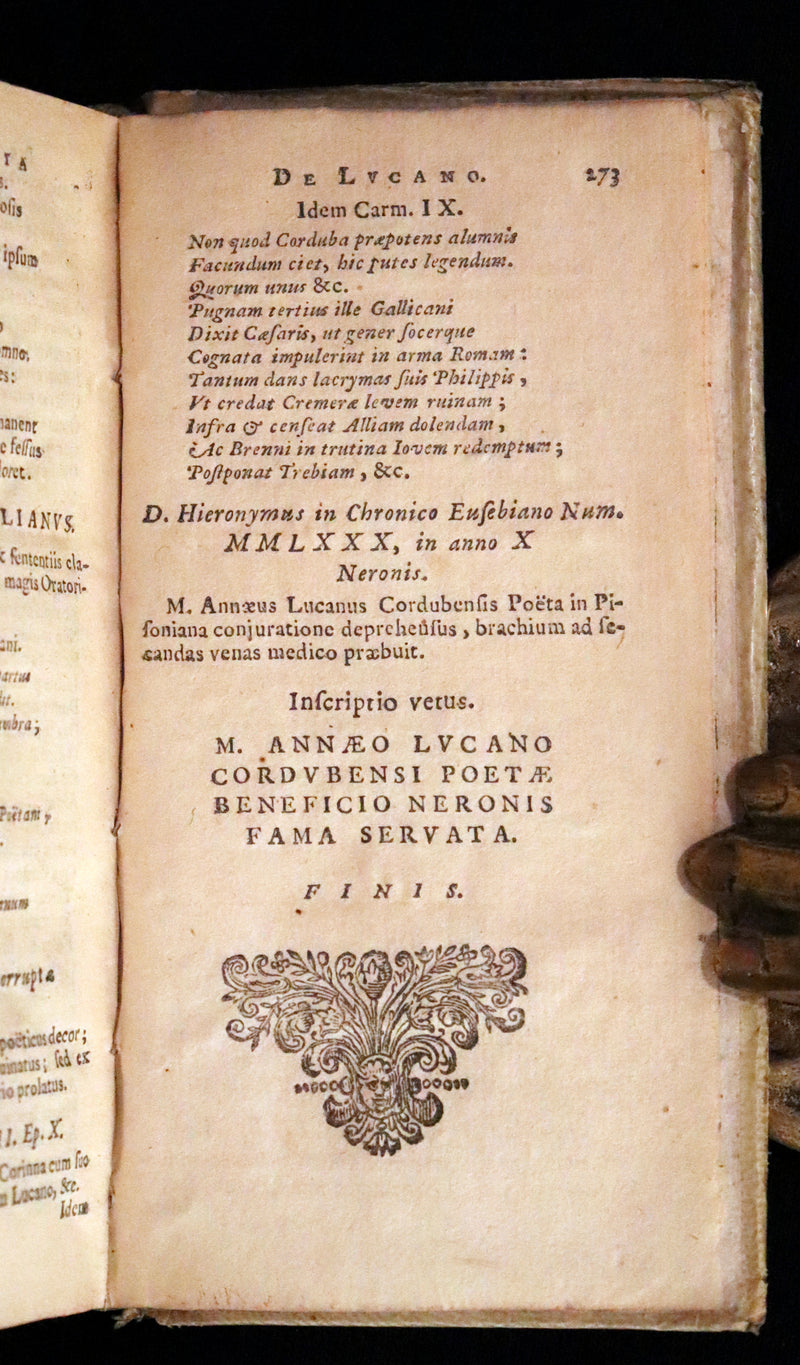 T A
s.
osis
ipsum
o
mno,
es:
manent
e fessus
loret.
LIANVS.
& sententiis cla-
magis Oratori-
ani.
Partus
lit.
umbra;
Poëtam,
rnum
errupta
poëticus decor;
minatus; sed ex
io prolatus.
I. Ep. X.
Corinna cum suo
n Lucano, &c.
Idem
DE LVCANO. 273
Idem Carm. IX.
Non quod Corduba præpotens alumnis
Facundum ciet, hic putes legendum.
Quorum unus &c.
Pugnam tertius ille Gallicani
Dixit Cæsaris, ut gener socerque
Cognata impulerint in arma Romam:
Tantum dans lacrymas suis Philippis,
Vt credat Cremeræ levem ruinam;
Infra & censeat Alliam dolendam,
Ac Brenni in trutina Iovem redemptum;
Postponat Trebiam, &c.
D. Hieronymus in Chronico Eusebiano Num.
MMLXXX, in anno X
Neronis.
M. Annæus Lucanus Cordubensis Poëta in Pi-
soniana conjuratione deprehensus, brachium ad se-
candas venas medico præbuit.
Inscriptio vetus.
M. ANNÆO LVCANO
CORDVBENSI POETÆ
BENEFICIO NERONIS
FAMA SERVATA.
FINIS.